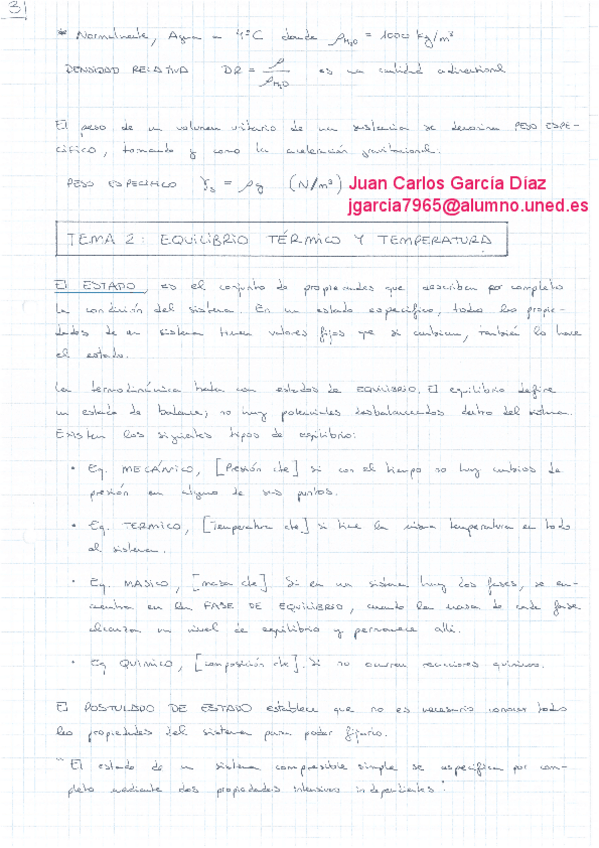 31
* Normalmente, Agua a 4°C donde ρH₂O = 1000 kg/m³
DENSIDAD RELATIVA DR = ρ/ρH₂O es una cantidad adimensional
El peso de un volumen unitario de una sustancia se denomina PESO ESPE-
CÍFICO, tomando g como la aceleración gravitacional.
PESO ESPECÍFICO γs = ρg (N/m³) Juan Carlos García Díaz
jgarcia7965@alumno.uned.es
TEMA 2: EQUILIBRIO TÉRMICO Y TEMPERATURA
El ESTADO, es el conjunto de propiedades que describen por completo
la condición del sistema. En un estado específico, todas las propie-
dades de un sistema tienen valores fijos que si cambian, también lo hace
el estado.
La termodinámica trata con estados de EQUILIBRIO. El equilibrio define
un estado de balance; no hay potenciales desbalanceados dentro del sistema.
Existen los siguientes tipos de equilibrio:
• Eq. MECÁNICO, [Presión cte] si con el tiempo no hay cambios de
presión en alguno de sus puntos.
• Eq. TERMICO, [Temperatura cte.] si tiene la misma temperatura en todo
el sistema.
• Eq. MASICO, [masa cte]. Si en un sistema hay dos fases, se en-
cuentra en la FASE DE EQUILIBRIO, cuando la masa de cada fase
alcanza un nivel de equilibrio y permanece allí.
• Eq QUIMICO, [composición cte.]. Si no ocurren reacciones químicas.
El POSTULADO DE ESTADO establece que no es necesario conocer todas
las propiedades del sistema para poder fijarlo.
"El estado de un sistema compresible simple se especifica por com-
pleto mediante dos propiedades intensivas independientes".